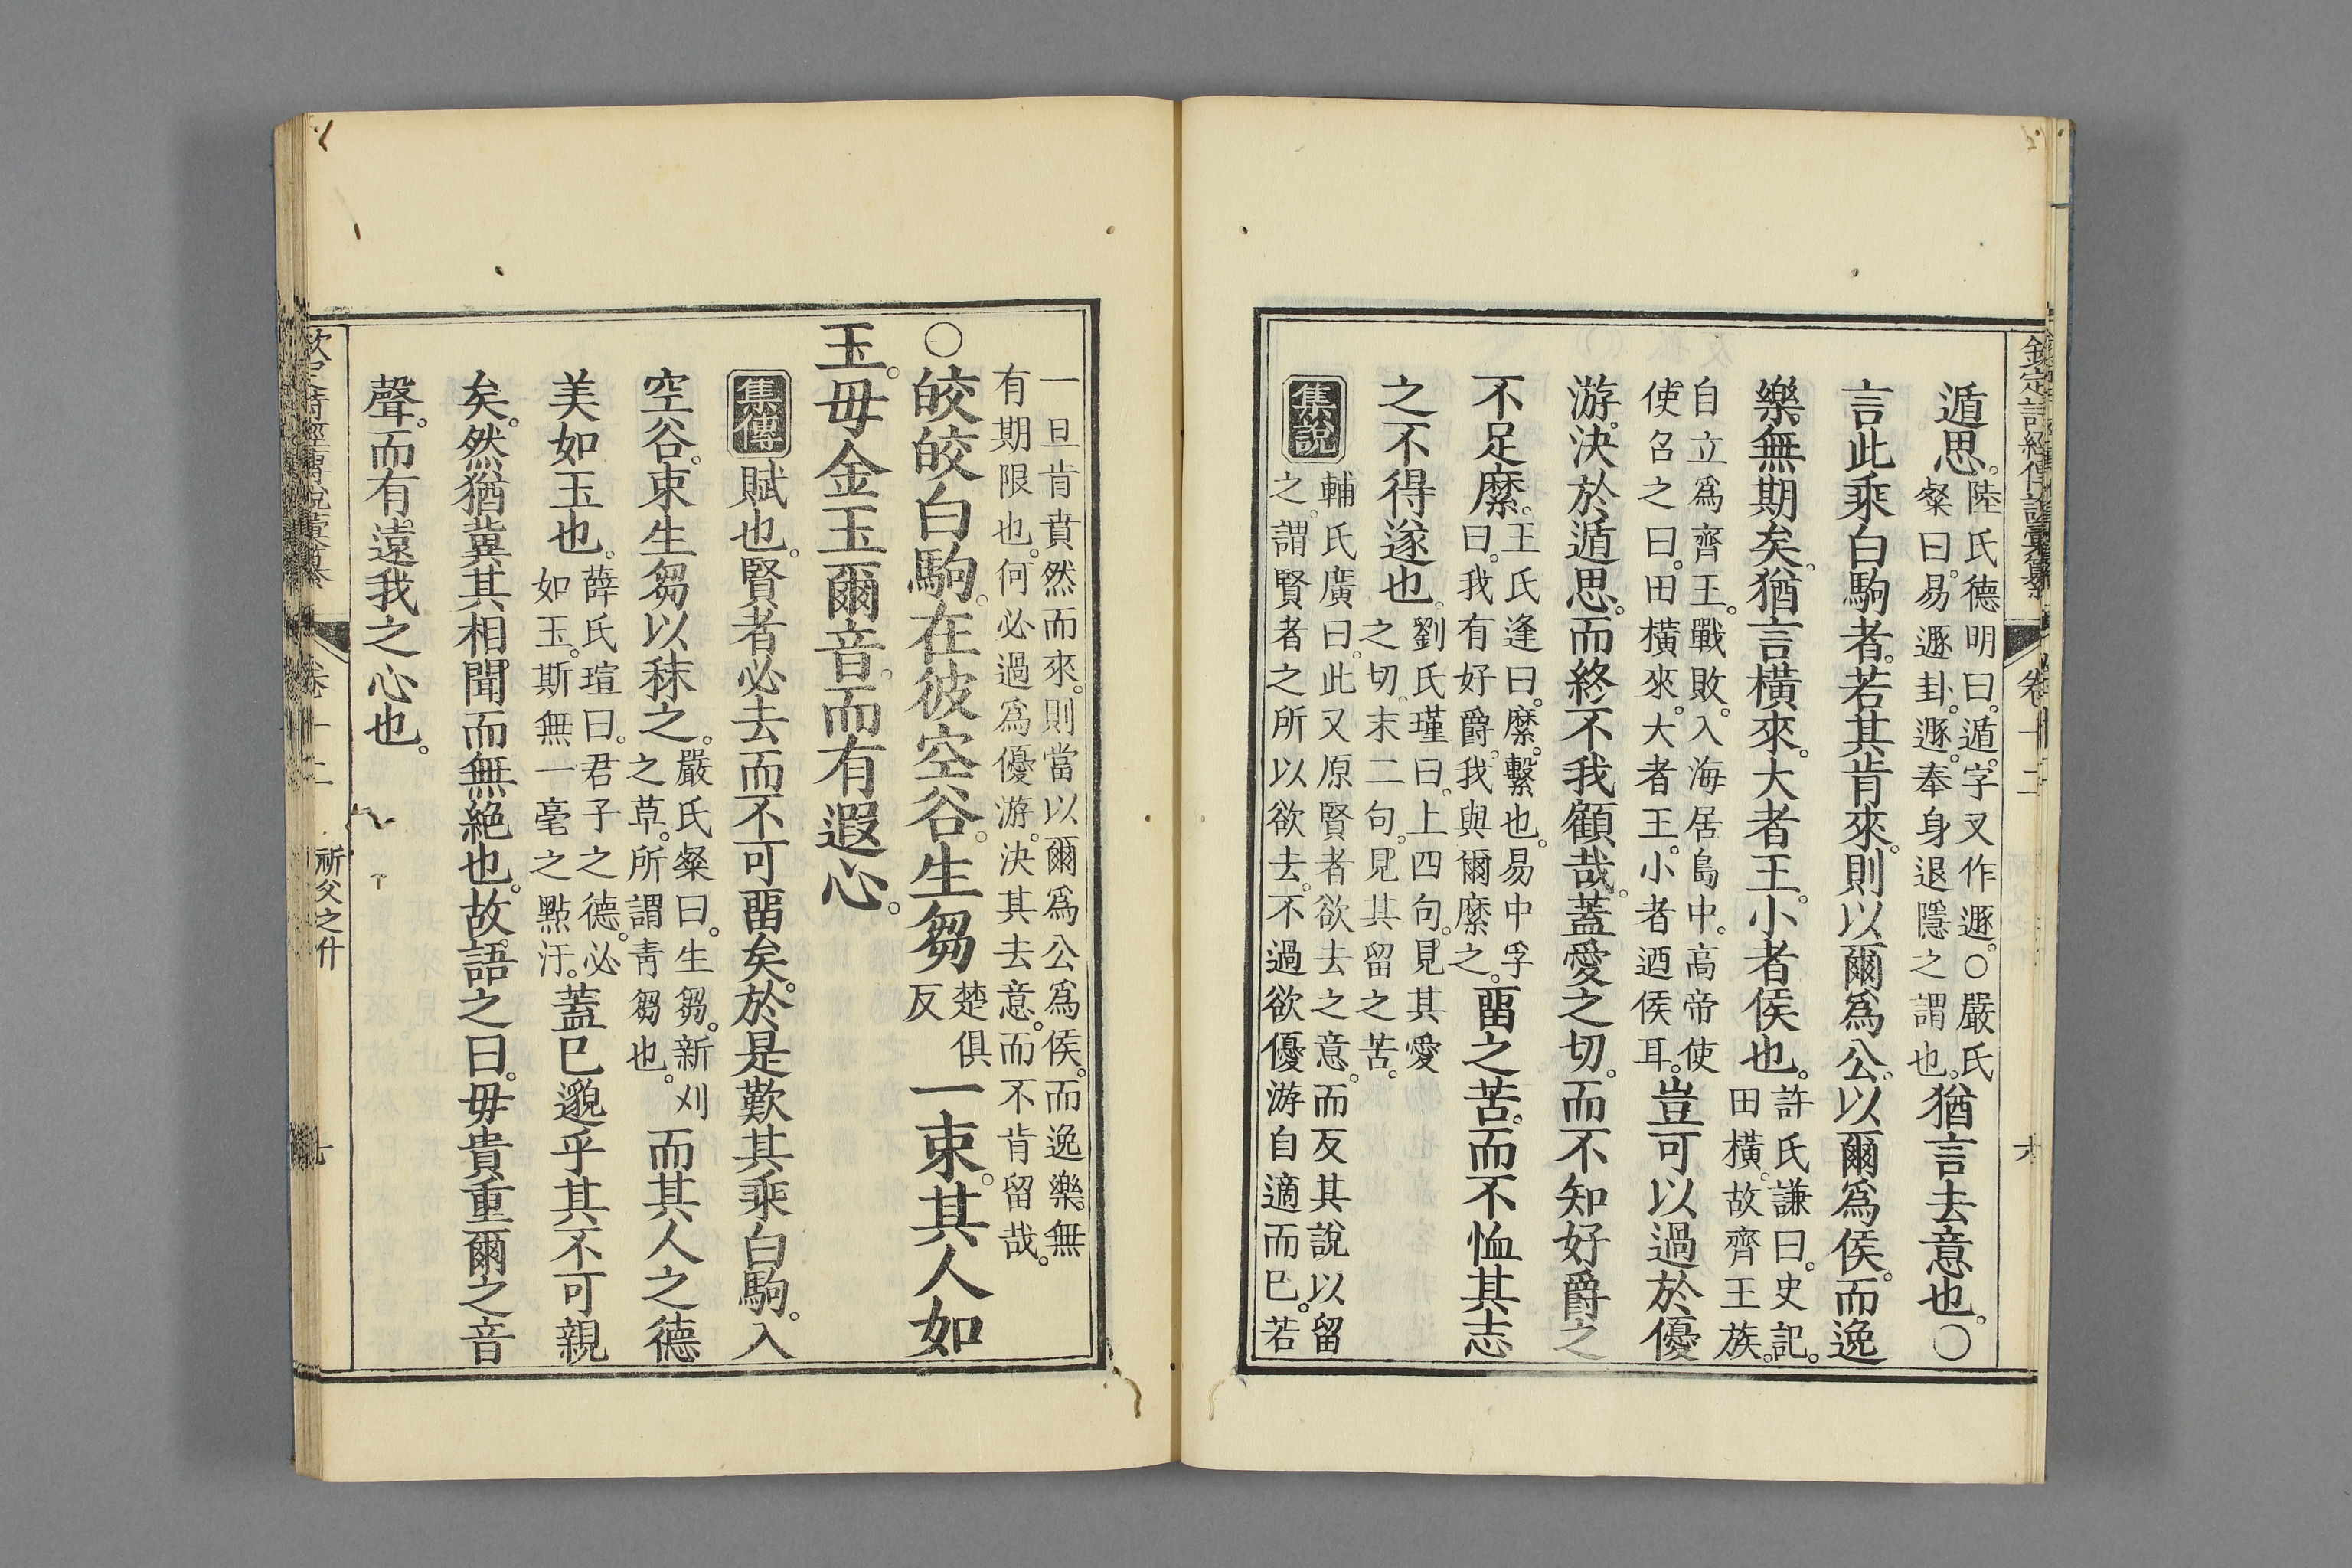 欽定詩經傳說彙纂 卷十二 六
遁思。陸氏德明曰。遁。字又作遯。○嚴氏
粲曰。易遯卦。遯。奉身退隱之謂也。猶言去意也。○
言此乘白駒者。若其肯來。則以爾爲公。以爾爲侯。而逸
樂無期矣。猶言橫來。大者王。小者侯也。許氏謙曰。史記。
田橫。故齊王族。
自立爲齊王。戰敗。入海居島中。高帝使
使召之曰。田橫來。大者王。小者迺侯耳。豈可以過於優
游。決於遁思。而終不我顧哉。蓋愛之切。而不知好爵之
不足縻。王氏逢曰。縻。繫也。易中孚
曰。我有好爵。我與爾縻之。留之苦。而不恤其志
之不得遂也。劉氏瑾曰。上四句。見其愛
之切。末二句。見其留之苦。
集說 輔氏廣曰。此又原賢者欲去之意。而反其說以留
之。謂賢者之所以欲去。不過欲優游自適而已。若
一旦肯賁然而來。則當以爾爲公爲侯。而逸樂。無
有期限也。何必過爲優游。決其去意。而不肯留哉。
○皎皎白駒。在彼空谷。生芻楚俱
反一束。其人如
玉。毋金玉爾音。而有遐心。
集傳 賦也。賢者必去而不可留矣。於是歎其乘白駒。入
空谷。束生芻以秣之。嚴氏粲曰。生芻。新刈
之草。所謂青芻也。而其人之德
美如玉也。薛氏瑄曰。君子之德。必
如玉。斯無一毫之點汙。蓋已邈乎其不可親
矣。然猶冀其相聞而無絕也。故語之曰。毋貴重爾之音
聲。而有遠我之心也。
欽定詩經傳說彙纂 卷十二 祈父之什 七